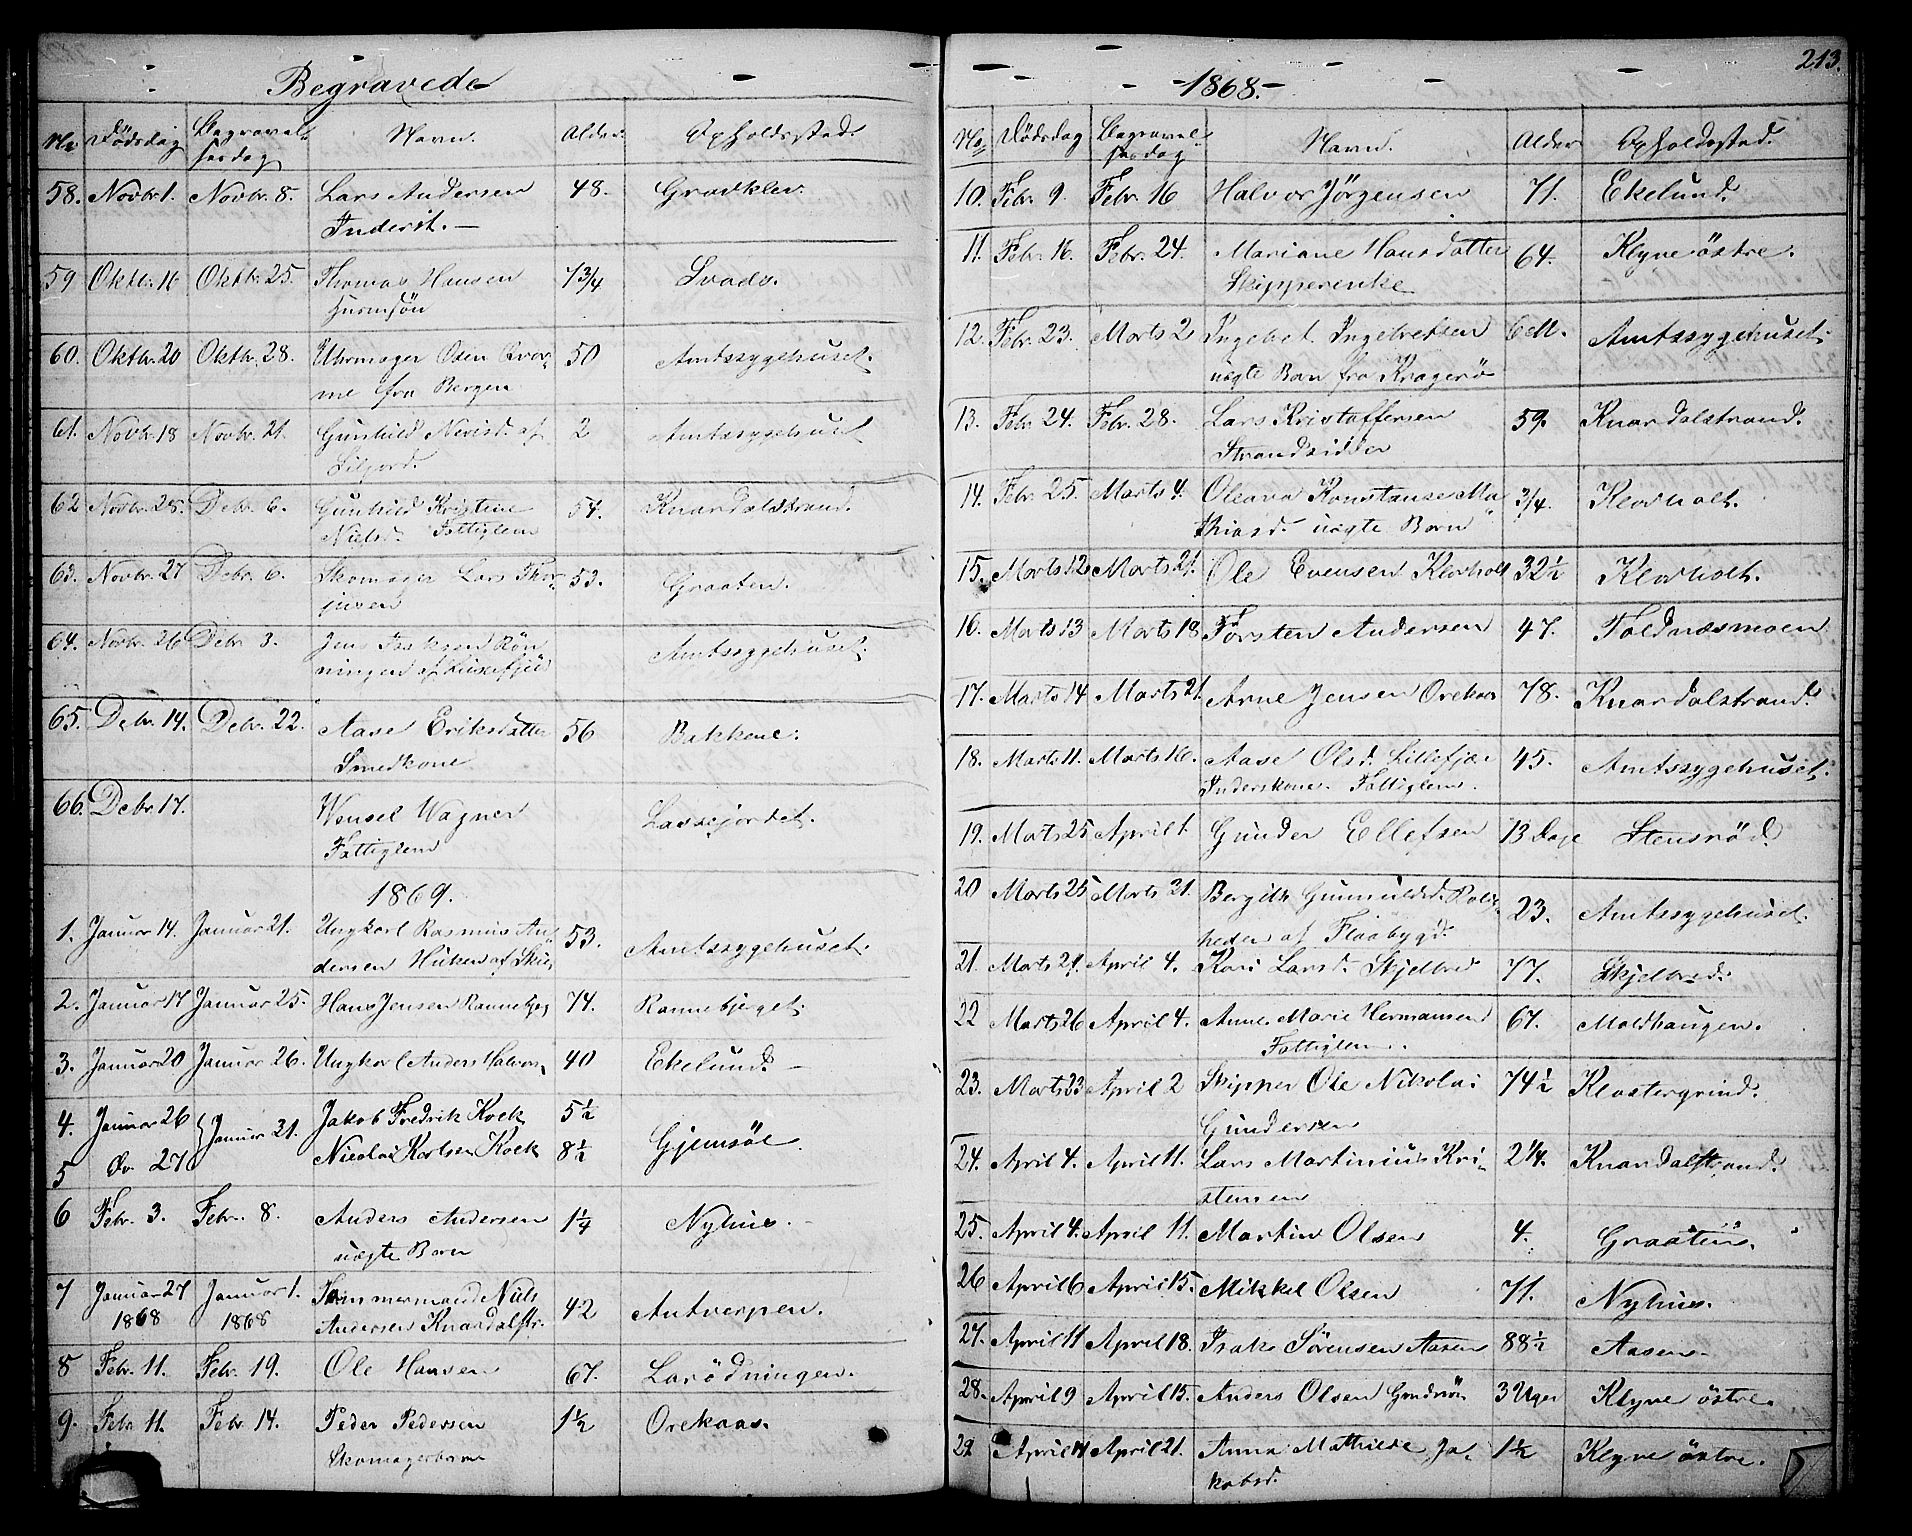 Begravede
No Dødsdag Begravel= Navn. Alder. Opholdssted.
sesdag
58. Novbr. 1. Novbr. 8. Lars Andersen 48. Gravklev.
Inderst. —
59 Oktbr. 16 Oktbr. 25. Thomas Hansen 1 3/4 Svads.
60. Oktbr. 20 Oktbr. 28. Uhrmager Osen 50 Amtssygehuset.
me fra Bergen
61. Novbr. 18 Novbr. 21. Gunhild af 2 Amtssygehuset
62 Novbr. 28. Debr. 6. Gunhild Kristine 54. Knardalstrand.
Nielsd. Fattiglem
63. Novbr. 27 Debr. 6. Skomager Lars Thor= 53. Graaten.
jusen
64. Novbr. 26 Debr. 3. Jens Isaksen Røn Amtssygehuset.
ningen af
65. Debr. 14. Debr. 22. Aase Eriksdatter 56 Bakkene.
Smedkone
66. Debr. 17. Wensel Wagner Lassejordet.
Fattiglem
1869.
1. Januar 14. Januar 21. Ungkarl Rasmus An 53. Amtssygehuset.
dersen af
2. Januar 17 Januar 25. Hans Jensen 74. Rannebjeget.
3. Januar 20 Januar 26. Ungkarl Anders Halvors. 40 Ekelund. —
4. Januar 26 Januar 31. Jakob Fredrik Kock 5 1/2 Gjemsøe.
5 27 Nicolai Karlsen Kock 8 1/2
6 Febr. 3. Febr. 8. Anders Andersen 1 1/4 Nyhus. —
uægte Barn
7 Januar 27 Januar 1. Tømmermand Niels 42 Antverpen.
1868 1868 Andersen Knardalstr.
8 Febr. 11. Febr. 19. Ole Hansen 67. Larødningen.
9. Febr. 11. Febr. 14. Peder Pedersen 1 1/2 Orekaas.
Skomagerbarn
213.
-1868.-
No Dødsdag Begravel Navn. Alder Opholdssted.
sesdag
10. Febr. 9. Febr. 16 Halvor Jørgensen 71. Ekelund.
11. Febr. 16. Febr. 24. Mariane Hansdatter 64. Klyve østre.
Skipperenke
12. Febr. 23. Marts 2 Ingebret Ingebretsen 6 M. Amtssygehuset.
uægte Barn fra Kragerø
13. Febr. 24. Febr. 28. Lars Kristoffersen 59. Knardalstrand.
Strandsidder
14. Febr. 25. Marts 4. Oleava Konstanse Ma 3/4. Klovholt.
thiasd. uægte Barn
15. Marts 12 Marts 21. Ole Evensen Klovholt 32 1/2 Klovholt.
16. Marts 13 Marts 18 Torsten Andersen 47. Foldnæsmoen
17. Marts 14 Marts 21. Arne Jensen Orekaas 78. Knardalstrand.
18. Marts 11. Marts 16. Aase Olsd. Lillefjær 45. Amtssygehuset.
Inderskone. Fattiglem.
19. Marts 25 April 1. Gunder Ellefsen 13 Dage Stensrød.
20 Marts 25 Marts 31. Bergith 23. Amtssygehuset.
heden af Flaabygd.
21. Marts 29. April 4. Kari Larsd. Skjelbred 77. Skjelbred.
22 Marts 26 April 4. Anne Marie Hermansen 67. Moldhaugen.
Fattiglem.
23. Marts 23 April 2 Skipper Ole Nikolai 74 1/2 Klostergrind.
Gundersen
24. April 4. April 11. Lars Martinius Kri= 2 1/4. Knardalstrand.
stensen
25. April 4. April 11. Martin Olsen 4. Graaten.
26 April 6 April 15. Mikkel Olsen 71. Nyhus.
27. April 11 April 18. Isak Sørensen Aasen 88 1/2 Aasen.
28. April 9 April 15. Anders Olsen 3 Uger Klyve østre.
29 April 14 April 21. Anna Mathilde Ja= 1 1/2 Klyve østre.
kobsd.